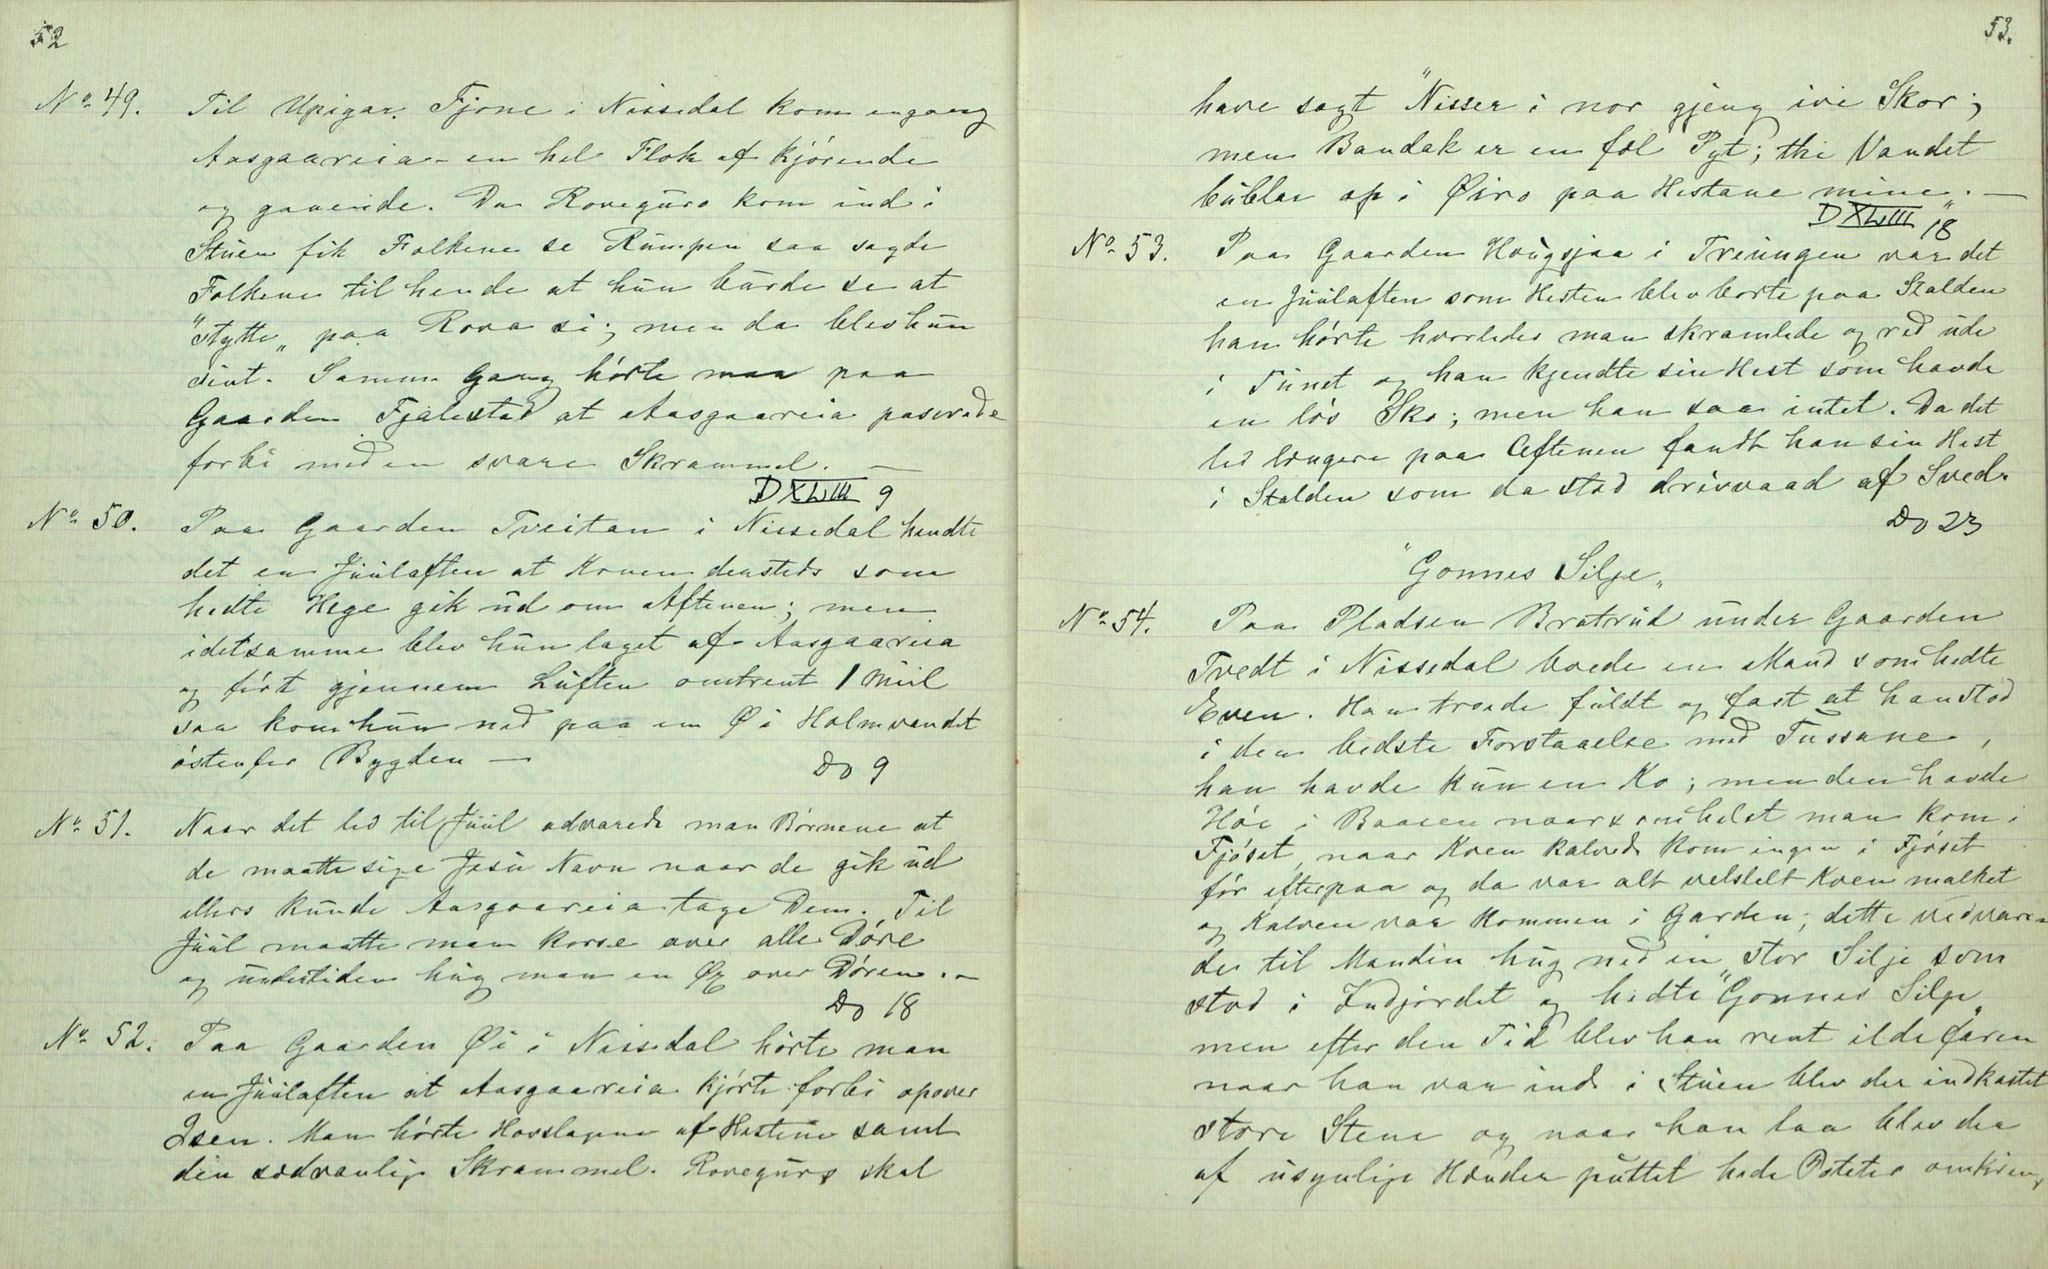 52
No 49. Til Upigar. Fjone i Nissedal kom engang
Aasgaareia - en hel Flok af Kjörende
og gaaende. Da Roveguro kom ind i
Stuen fik Folkene se Rumpen saa sagde
Folkene til hende at hun burde se at
"stytte" paa Rova si; men da blev hun
sint. Samme Gang hörte man paa
Gaarden Fjalestad at Aasgaareia paserede
forbi med en svare Skrammel. —
D XLVIII 9
No 50. Paa Gaarden Tveitan i Nissedal hendte
det en Juulaften at Konen densteds som
hedte Hege gik ud om Aftenen; men
idetsamme blev hun taget af Aasgaareia
og fört gjennem Luften omtrent 1 Miil
saa kom hun ned paa en Ø i Holmvandet
östenfor Bygden —
Do 9
No 51. Naar det led til Juul advarede man Börnene at
de maatte sige Jesu Navn naar de gik ud
ellers kunde Aasgaareia tage Dem. Til
Juul maatte man korse over alle Döre
og undertiden hug man en Øx over Dören. —
Do 18
No 52. Paa Gaarden Øi i Nissedal hörte man
en Juulaften at Aasgaareia kjörte forbi opover
Isen. Man hörte Hovslagene af Hestene samt
den sædvanlige Skrammel. Roveguro skal
53.
have sagt "Nisser i nor gjeng ivi Skor;
men Bandak er en fæl Pyt; thi Vandet
bublar op i Øiro paa Hestane mine". —
D XLVIII 18
No 53. Paa Gaarden Haugsjaa i Treungen var det
en Juulaften som Hesten blev borte paa Stalden
han hörte hvorledes man skramlede og red ude
i Tunet og han kjendte sin Hest som havde
en lös Sko; men han saa intet. Da det
led længere paa Aftenen fandt han sin Hest
i Stalden som da stod drivvaad af Sved.
Do 23
"Gonnes Silje"
No 54. Paa Pladsen Bratrud under Gaarden
Tvedt i Nissedal boede en Mand som hedte
Even. Han troede fuldt og fast at han stod
i den bedste Forstaaelse med Tussane,
han havde kun en Ko; men den havde
Höe i Baasen naarsomhelst man kom i
Fjöset, naar Koen kalvede kom ingen i Fjöset
för efterpaa og da var alt velstelt Koen malket
og Kalven var kommen i Garden; dette vedvare=
de til Manden hug ned en stor Silje som
stod i Indjordet og hedte "Gonnes Silje"
men efter den Tid blev han rent ilde faren
naar han var inde i Stuen blev der indkastet
store Stene og naar han laa blev der
af usynlige Hænder puttet hede Poteter omkring